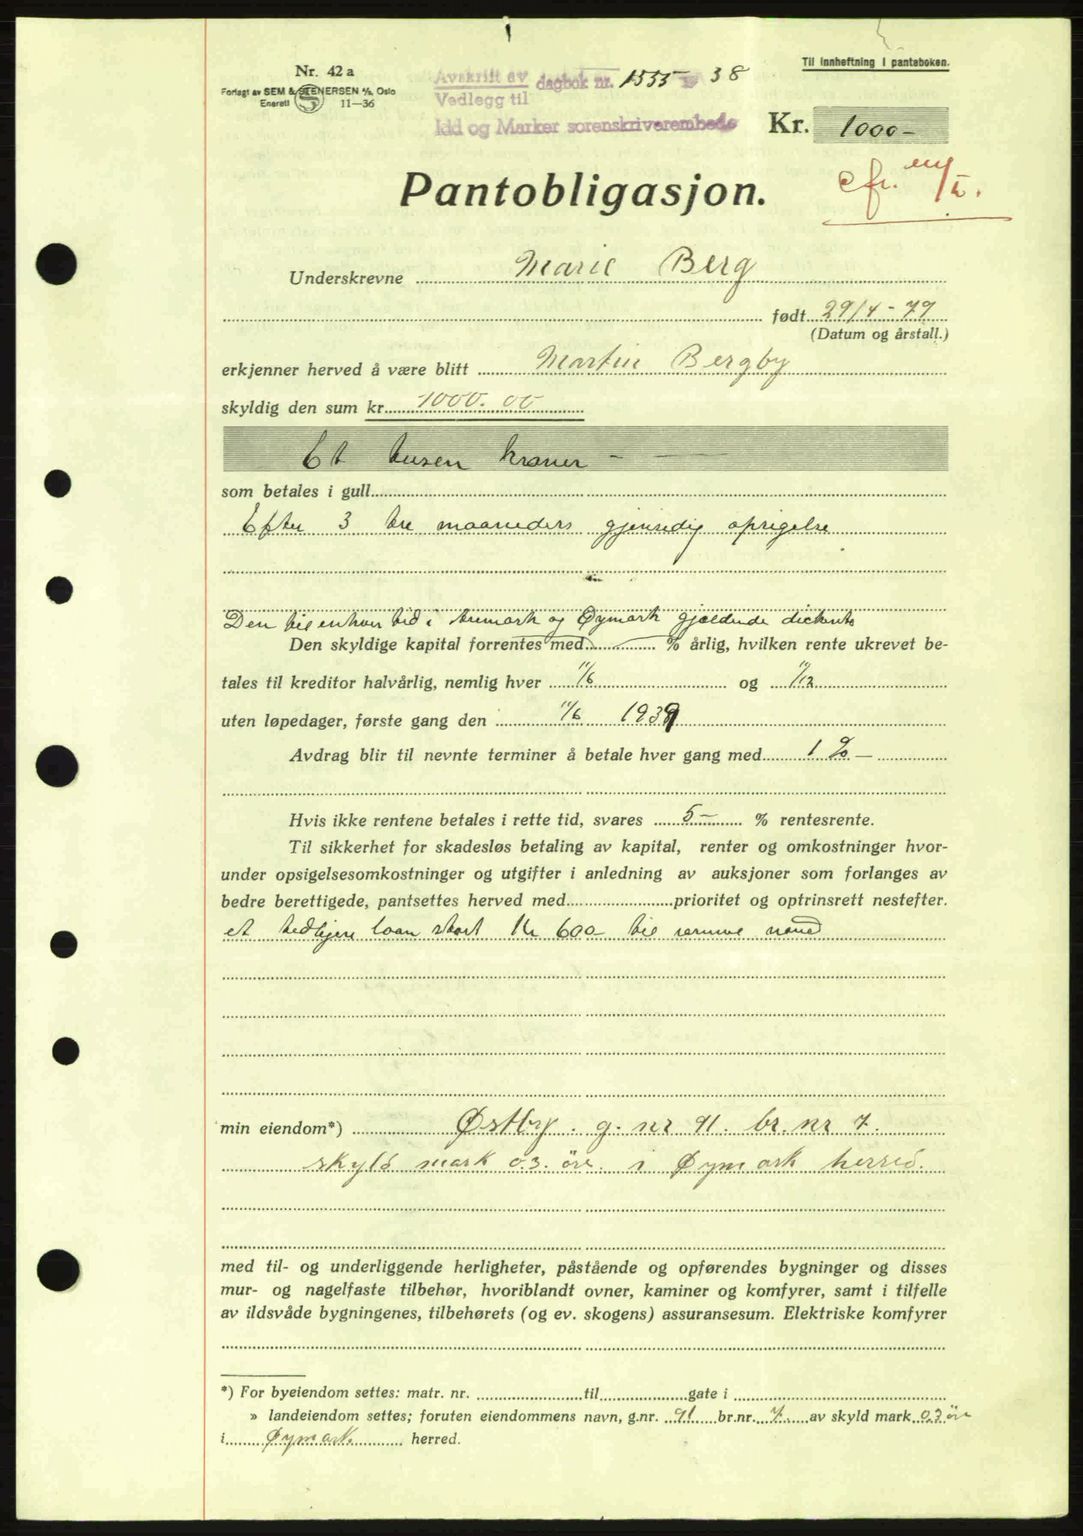 Nr. 42 a
Forlagt av SEM & STENERSEN A/S, Oslo
Enerett 11-36
Avskrift av
Vedlegg til dagbok nr. 1555 19 38
Idd og Marker sorenskriverembede
Til innheftning i panteboken.
Kr. 1000 -
cfr.
Pantobligasjon.
Underskrevne Marie Berg
født 29/4 - 79
(Datum og årstall.)
erkjenner herved å være blitt Martin Bergby
skyldig den sum kr. 1000.00
Et tusen kroner -
som betales i gull
Efter 3 tre maaneders gjensidig opsigelse
Den til enhver tid i Aremark og Øymark gjeldende diskonto
Den skyldige kapital forrentes med % årlig, hvilken rente ukrevet be-
tales til kreditor halvårlig, nemlig hver 11/6 og 11/12
uten løpedager, første gang den 11/6 1939
Avdrag blir til nevnte terminer å betale hver gang med 1 % -
Hvis ikke rentene betales i rette tid, svares 5 - % rentesrente.
Til sikkerhet for skadesløs betaling av kapital, renter og omkostninger hvor-
under opsigelsesomkostninger og utgifter i anledning av auksjoner som forlanges av
bedre berettigede, pantsettes herved med prioritet og optrinsrett nestefter.
et tidligere laan stort Kr 600 til samme mand
min eiendom*) Østby. g. nr 91. br. nr 7.
skyld mark 0.3. öre. i Øymark herred.
med til- og underliggende herligheter, påstående og opførendes bygninger og disses
mur- og nagelfaste tilbehør, hvoriblandt ovner, kaminer og komfyrer, samt i tilfelle
av ildsvåde bygningenes, tilbehørets (og ev. skogens) assuransesum. Elektriske komfyrer
*) For byeiendom settes: matr. nr. til gate i
» landeiendom settes; foruten eiendommens navn, g.nr. 91 br.nr. 7. av skyld mark 0.3 öre
i Øymark herred.